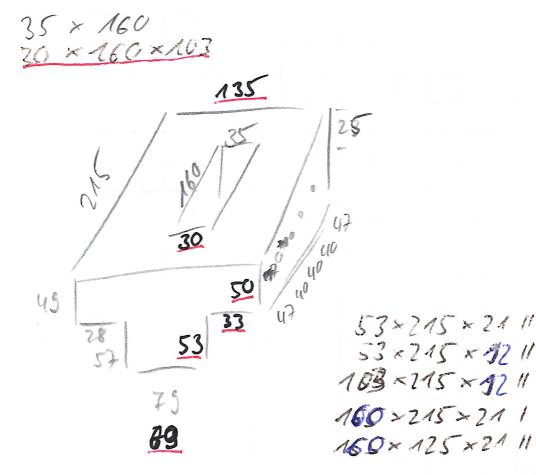 35 × 160
30 × 160 × 103
135
25
35
215
160
30
47
40
40
40
47
49
50
28
33
57
53
79
69
53 × 215 × 21 II
53 × 215 × 12 II
103 × 215 × 12 II
160 × 215 × 21 I
160 × 125 × 21 II